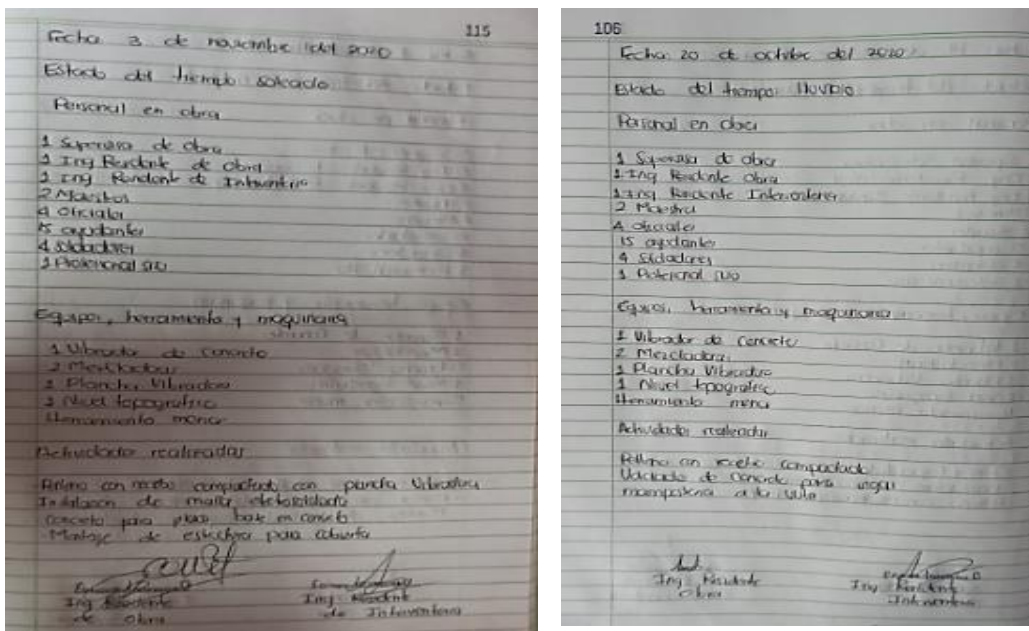 115
Fecha 3 de noviembre del 2020
Estado del tiempo soleado
Personal en obra
1 Supervisor de obra
1 Ing Residente de obra
1 Ing Residente de Interventoria
2 Maestros
4 Oficiales
15 ayudantes
4 Soldadores
1 Profesional
Equipos, herramienta y maquinaria
1 Vibrador de concreto
2 Mezcladoras
1 Plancha Vibradora
1 Nivel topografico
Herramienta menor
Actividades realizadas
Relleno con recebo compactado con plancha Vibradora
Instalacion de malla electosoldada
Concreto para placa base en concreto
Montaje de estructura para cubierta
Ing Residente
de Obra
Ing Residente
de Interventoria
106
Fecha 20 de octubre del 2020
Estado del tiempo: lluvioso
Personal en obra
1 Supervisor de obra
1 Ing Residente Obra
1 Ing Residente Interventoria
2 Maestros
4 oficiales
15 ayudantes
4 Soldadores
1 Profesional
Equipos, herramienta y maquinaria
1 Vibrador de concreto
2 Mezcladoras
1 Plancha Vibradora
1 Nivel topografico
Herramienta menor
Actividades realizadas
Relleno con recebo compactado
Vaciado de concreto para vigas
mamposteria a la vista
Ing Residente
Obra
Ing Residente
Interventoria